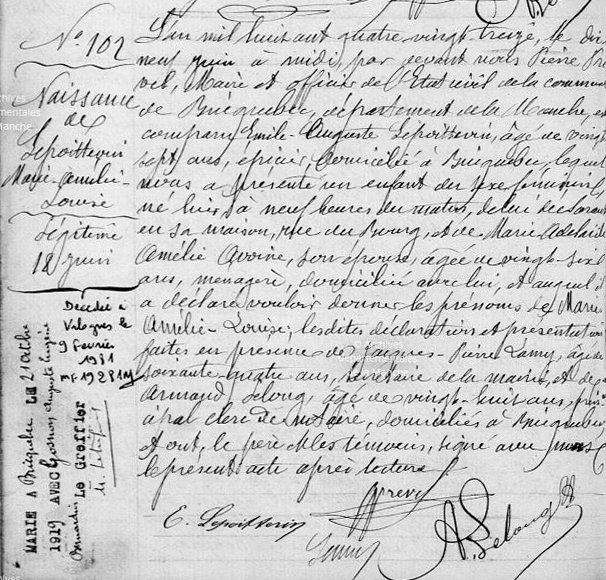 N° 102
Naissance
de
Lepoittevin
Marie-Amélie-
Louise
Légitime
18 juin
Décédée à
Valognes le
9 Février
1981
MARIÉ A Bricquebec LE 21 octobre
1919 AVEC Auguste Eugène
Le Greffier
L'an mil huit cent quatre-vingt-treize, le dix
neuf juin à midi, par devant nous Pierre Pre
vel, Maire et officier de l'Etat civil de la commune
de Bricquebec, département de la Manche, est
comparu Emile-Auguste Lepoittevin, âgé de vingt
sept ans, épicier, domicilié à Bricquebec, lequel
nous a présenté un enfant du sexe féminin,
né hier, à neuf heures du matin, de lui déclarant
en sa maison, rue du Bourg, et de Marie Adelaïde
Amélie Avoine, son épouse, âgée de vingt-six
ans, ménagère, domiciliée avec lui, et auquel il
a déclaré vouloir donner les prénoms de Marie
Amélie-Louise; lesdites déclaration et présentation
faites en présence de Jacques-Pierre Lamy, âgé de
soixante-quatre ans, secrétaire de la mairie, et de
Armand Lelong, âgé de vingt-huit ans, prin-
cipal clerc de notaire, domiciliés à Bricquebec
et ont, le père et les témoins, signé avec nous
le présent acte après lecture.
Prevel
E. Lepoittevin
Lamy
A. Lelong